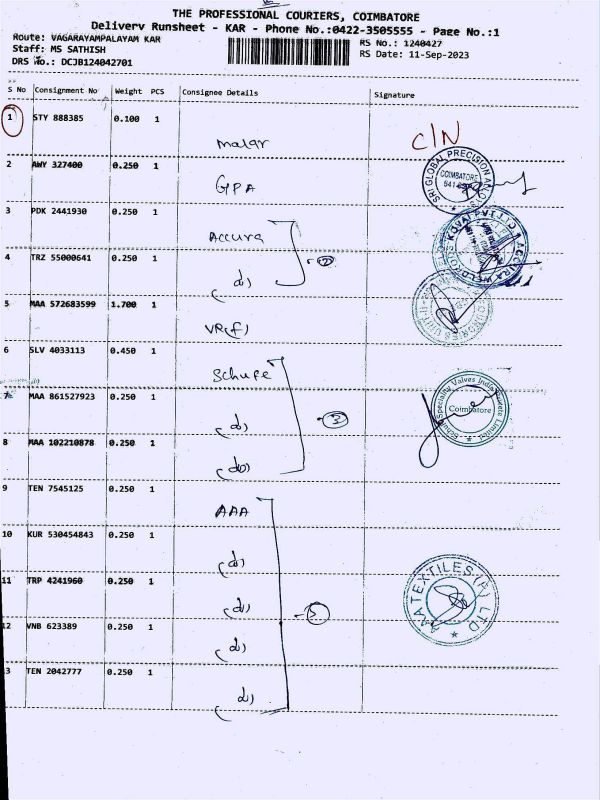 THE PROFESSIONAL COURIERS, COIMBATORE
Delivery Runsheet - KAR - Phone No.:0422-3505555 - Page No.:1
Route: VAGARAYAMPALAYAM KAR
RS No.: 1240427
Staff: MS SATHISH
RS Date: 11-Sep-2023
DRS No.: DCJB124042701
S No Consignment No Weight PCS Consignee Details Signature
1 STY 888385 0.100 1
Malar
C/N
2 AWY 327400 0.250 1
GPA
SRI GLOBAL PRECISION
COIMBATORE
3 PDK 2441930 0.250 1
Accura
4 TRZ 55000641 0.250 1
(d)
2
5 MAA 572683599 1.700 1
VR(f)
6 SLV 4033113 0.450 1
Schufe
7 MAA 861527923 0.250 1
(d)
3
Specialty Valves India Private Limited
Coimbatore
8 MAA 102210878 0.250 1
(do)
9 TEN 7545125 0.250 1
AAA
10 KUR 530454843 0.250 1
(d)
11 TRP 4241960 0.250 1
(d)
5
AAA TEXTILES (P) LTD
12 VNB 623389 0.250 1
(d)
3 TEN 2042777 0.250 1
(d)